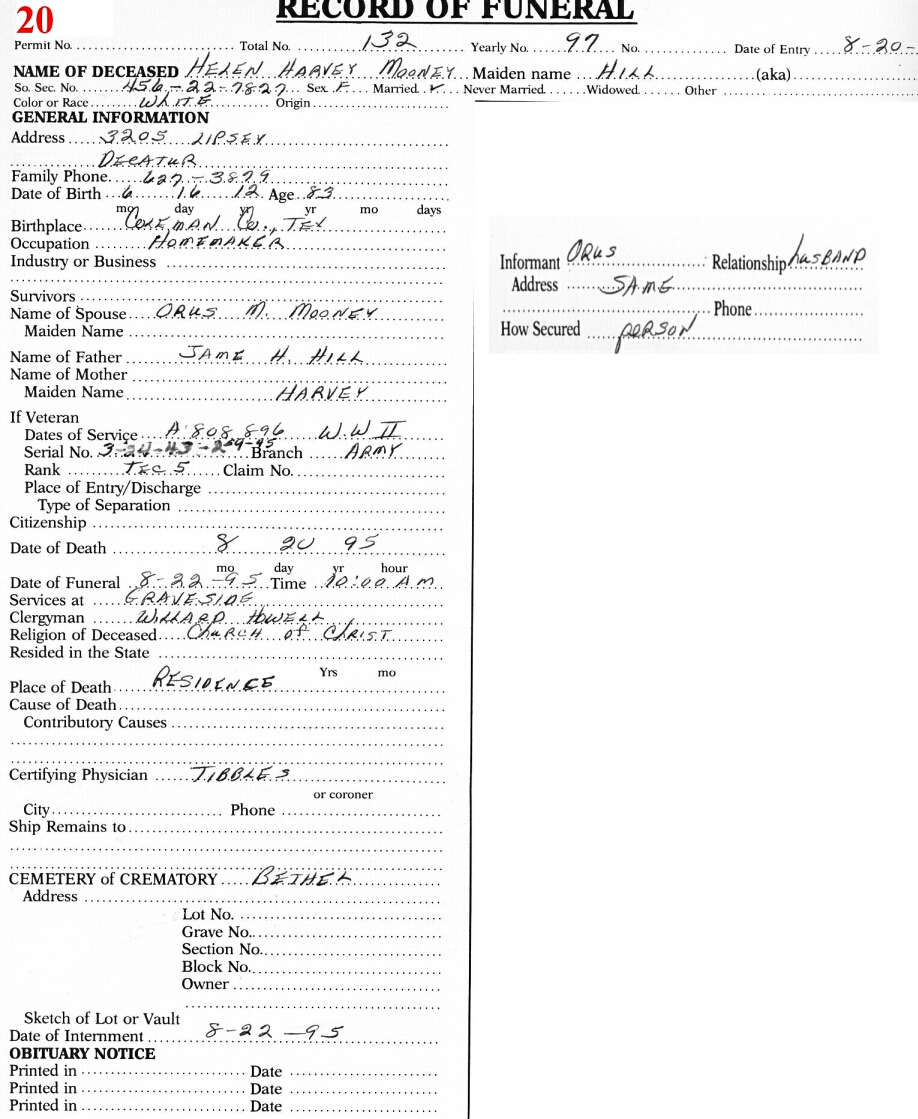 20
RECORD OF FUNERAL
Permit No. Total No. 132 Yearly No. 97 No. Date of Entry 8-20-
NAME OF DECEASED HELEN HARVEY MOONEY Maiden name HILL (aka)
So. Sec. No. 456-22-7827 Sex F Married ✓ Never Married Widowed Other
Color or Race WHITE Origin
GENERAL INFORMATION
Address 3205 LIPSEY
DECATUR
Family Phone 627-3879
Date of Birth 6 16 12 Age 83
mo day yr yr mo days
Birthplace COLEMAN CO., TEX
Occupation HOMEMAKER
Industry or Business
Survivors
Name of Spouse ORUS M. MOONEY
Maiden Name
Name of Father JAME H. HILL
Name of Mother
Maiden Name HARVEY
If Veteran
Dates of Service A 808 896 W.W II
Serial No. 3-24-43 Branch ARMY
Rank TEC 5 Claim No.
Place of Entry/Discharge
Type of Separation
Citizenship
Date of Death 8 20 95
mo day yr hour
Date of Funeral 8-22-95 Time 10:00 A.M.
Services at GRAVESIDE
Clergyman WILLARD HOWELL
Religion of Deceased CHURCH OF CHRIST
Resided in the State
Yrs mo
Place of Death RESIDENCE
Cause of Death
Contributory Causes
Certifying Physician TIBBLES
or coroner
City Phone
Ship Remains to
CEMETERY of CREMATORY BETHEL
Address
Lot No.
Grave No.
Section No.
Block No.
Owner
Sketch of Lot or Vault
Date of Internment 8-22-95
OBITUARY NOTICE
Printed in Date
Printed in Date
Printed in Date
Informant ORUS Relationship HUSBAND
Address SAME
Phone
How Secured PERSON